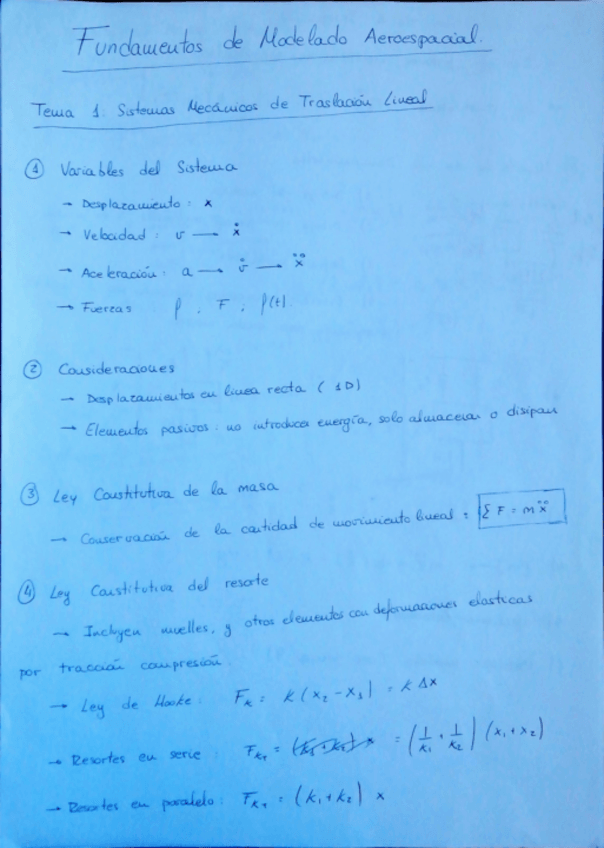 Fundamentos de Modelado Aeroespacial.
Tema 1. Sistemas Mecánicos de Traslación Lineal
① Variables del Sistema
→ Desplazamiento: x
→ Velocidad: v → ẋ
→ Aceleración: a → v̇ → ẍ
→ Fuerzas f, F, f(t).
② Consideraciones
→ Desplazamientos en linea recta (1D)
→ Elementos pasivos: no introducen energía, solo almacenan o disipan
③ Ley Constitutiva de la masa
→ Conservación de la cantidad de movimiento lineal: Σ F = mẍ
④ Ley Constitutiva del resorte
→ Incluyen muelles, y otros elementos con deformaciones elasticas
por tracción compresión.
→ Ley de Hooke: F_k = k(x₂ - x₁) = k Δx
→ Resortes en serie: F_kT = (1/k₁ + 1/k₂)(x₁ + x₂)
→ Resortes en paralelo: F_kT = (k₁ + k₂) x